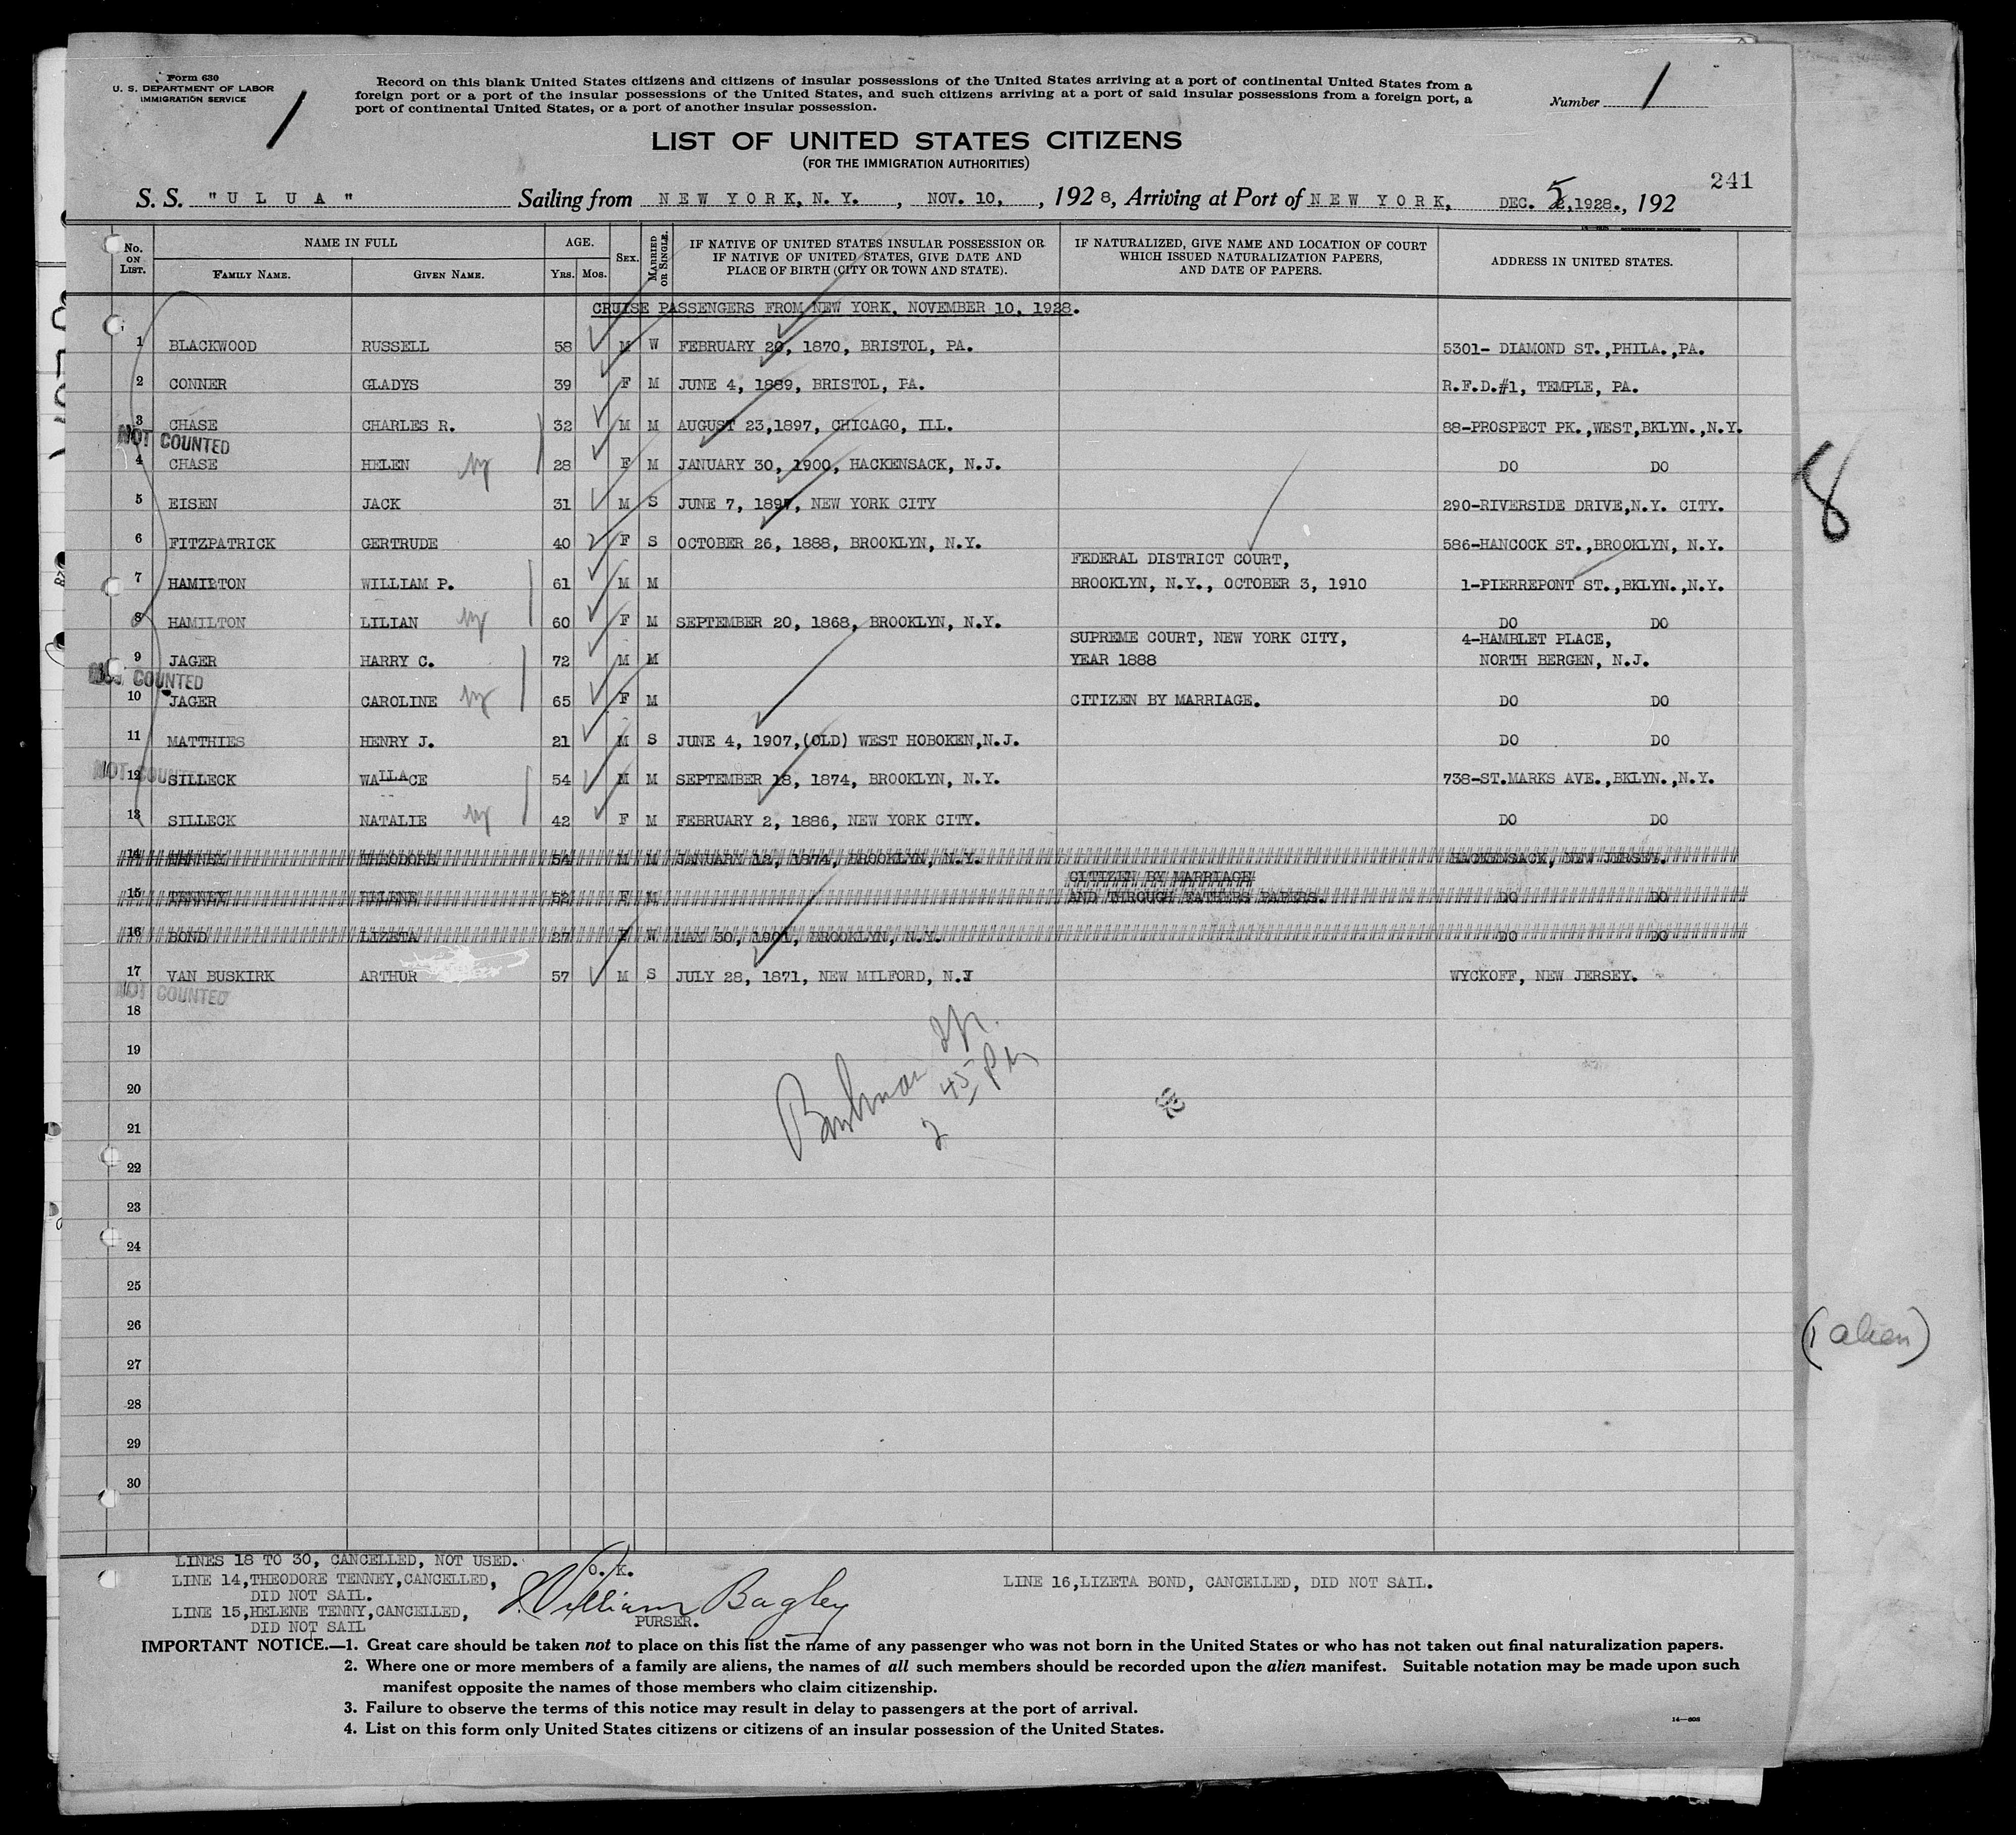 Form 630
U. S. DEPARTMENT OF LABOR
IMMIGRATION SERVICE
1
Record on this blank United States citizens and citizens of insular possessions of the United States arriving at a port of continental United States from a
foreign port or a port of the insular possessions of the United States, and such citizens arriving at a port of said insular possessions from a foreign port, a
port of continental United States, or a port of another insular possession.
Number 1
LIST OF UNITED STATES CITIZENS
(FOR THE IMMIGRATION AUTHORITIES)
241
S. S. "ULUA" Sailing from NEW YORK, N.Y., NOV. 10, , 1928, Arriving at Port of NEW YORK, DEC. 5,1928., 192
No. ON LIST. NAME IN FULL FAMILY NAME. GIVEN NAME. AGE. YRS. MOS. SEX. MARRIED OR SINGLE. IF NATIVE OF UNITED STATES INSULAR POSSESSION OR IF NATIVE OF UNITED STATES, GIVE DATE AND PLACE OF BIRTH (CITY OR TOWN AND STATE). IF NATURALIZED, GIVE NAME AND LOCATION OF COURT WHICH ISSUED NATURALIZATION PAPERS, AND DATE OF PAPERS. ADDRESS IN UNITED STATES.
CRUISE PASSENGERS FROM NEW YORK, NOVEMBER 10, 1928.
1 BLACKWOOD RUSSELL 58 M W FEBRUARY 20, 1870, BRISTOL, PA. 5301- DIAMOND ST.,PHILA.,PA.
2 CONNER GLADYS 39 F M JUNE 4, 1889, BRISTOL, PA. R.F.D.#1, TEMPLE, PA.
3 CHASE CHARLES R. 32 M M AUGUST 23,1897, CHICAGO, ILL. 88-PROSPECT PK.,WEST,BKLYN.,N.Y.
NOT COUNTED
4 CHASE HELEN 28 F M JANUARY 30, 1900, HACKENSACK, N.J. DO DO
5 EISEN JACK 31 M S JUNE 7, 1897, NEW YORK CITY 290-RIVERSIDE DRIVE,N.Y. CITY.
6 FITZPATRICK GERTRUDE 40 F S OCTOBER 26, 1888, BROOKLYN, N.Y. 586-HANCOCK ST.,BROOKLYN, N.Y.
FEDERAL DISTRICT COURT,
7 HAMILTON WILLIAM P. 61 M M BROOKLYN, N.Y., OCTOBER 3, 1910 1-PIERREPONT ST.,BKLYN.,N.Y.
8 HAMILTON LILIAN 60 F M SEPTEMBER 20, 1868, BROOKLYN, N.Y. DO DO
SUPREME COURT, NEW YORK CITY, 4-HAMBLET PLACE,
9 JAGER HARRY C. 72 M M YEAR 1888 NORTH BERGEN, N.J.
COUNTED
10 JAGER CAROLINE 65 F M CITIZEN BY MARRIAGE. DO DO
11 MATTHIES HENRY J. 21 M S JUNE 4, 1907,(OLD) WEST HOBOKEN,N.J. DO DO
NOT COUNTED
12 SILLECK WALLACE 54 M M SEPTEMBER 18, 1874, BROOKLYN, N.Y. 738-ST.MARKS AVE.,BKLYN.,N.Y.
13 SILLECK NATALIE 42 F M FEBRUARY 2, 1886, NEW YORK CITY. DO DO
14 TENNEY THEODORE 54 M M JANUARY 12, 1874, BROOKLYN, N.Y. HACKENSACK, NEW JERSEY.
CITIZEN BY MARRIAGE
15 TENNEY HELENE 52 F M AND THROUGH FATHERS PAPERS. DO DO
16 BOND LIZETA 27 F W MAY 30, 1901, BROOKLYN, N.Y. DO DO
17 VAN BUSKIRK ARTHUR 57 M S JULY 28, 1871, NEW MILFORD, N.J WYCKOFF, NEW JERSEY.
NOT COUNTED
18
19
20
21
22
23
24
25
26
27
28
29
30
8
2 45 PM
(1 alien)
LINES 18 TO 30, CANCELLED, NOT USED.
LINE 14,THEODORE TENNEY,CANCELLED,
DID NOT SAIL.
LINE 15,HELENE TENNY,CANCELLED,
DID NOT SAIL
O. K.
William Bagley
PURSER.
LINE 16,LIZETA BOND, CANCELLED, DID NOT SAIL.
IMPORTANT NOTICE.—1. Great care should be taken not to place on this list the name of any passenger who was not born in the United States or who has not taken out final naturalization papers.
2. Where one or more members of a family are aliens, the names of all such members should be recorded upon the alien manifest. Suitable notation may be made upon such
manifest opposite the names of those members who claim citizenship.
3. Failure to observe the terms of this notice may result in delay to passengers at the port of arrival.
4. List on this form only United States citizens or citizens of an insular possession of the United States.